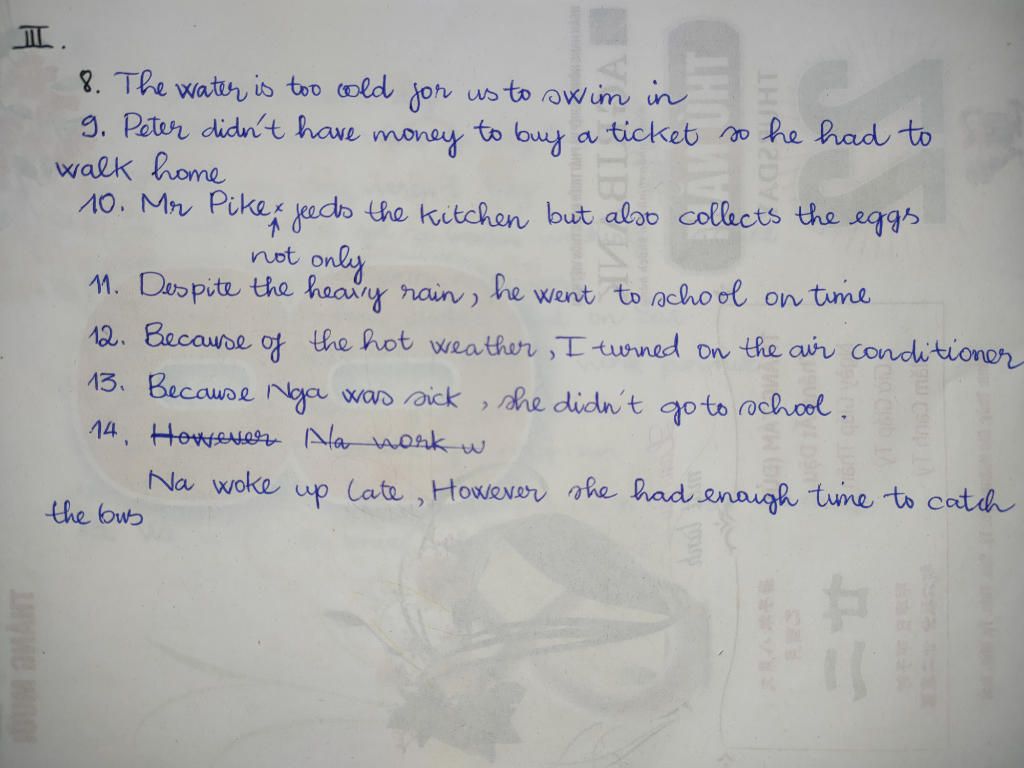 III.
8. The water is too cold for us to swim in
9. Peter didn't have money to buy a ticket so he had to
walk home
10. Mr Pike feeds the kitchen but also collects the eggs
not only
11. Despite the heavy rain, he went to school on time
12. Because of the hot weather, I turned on the air conditioner
13. Because Nga was sick, she didn't go to school.
14. However Na work w
Na woke up late, However she had enough time to catch
the bus
THURSDAY
22
AGRIBANK